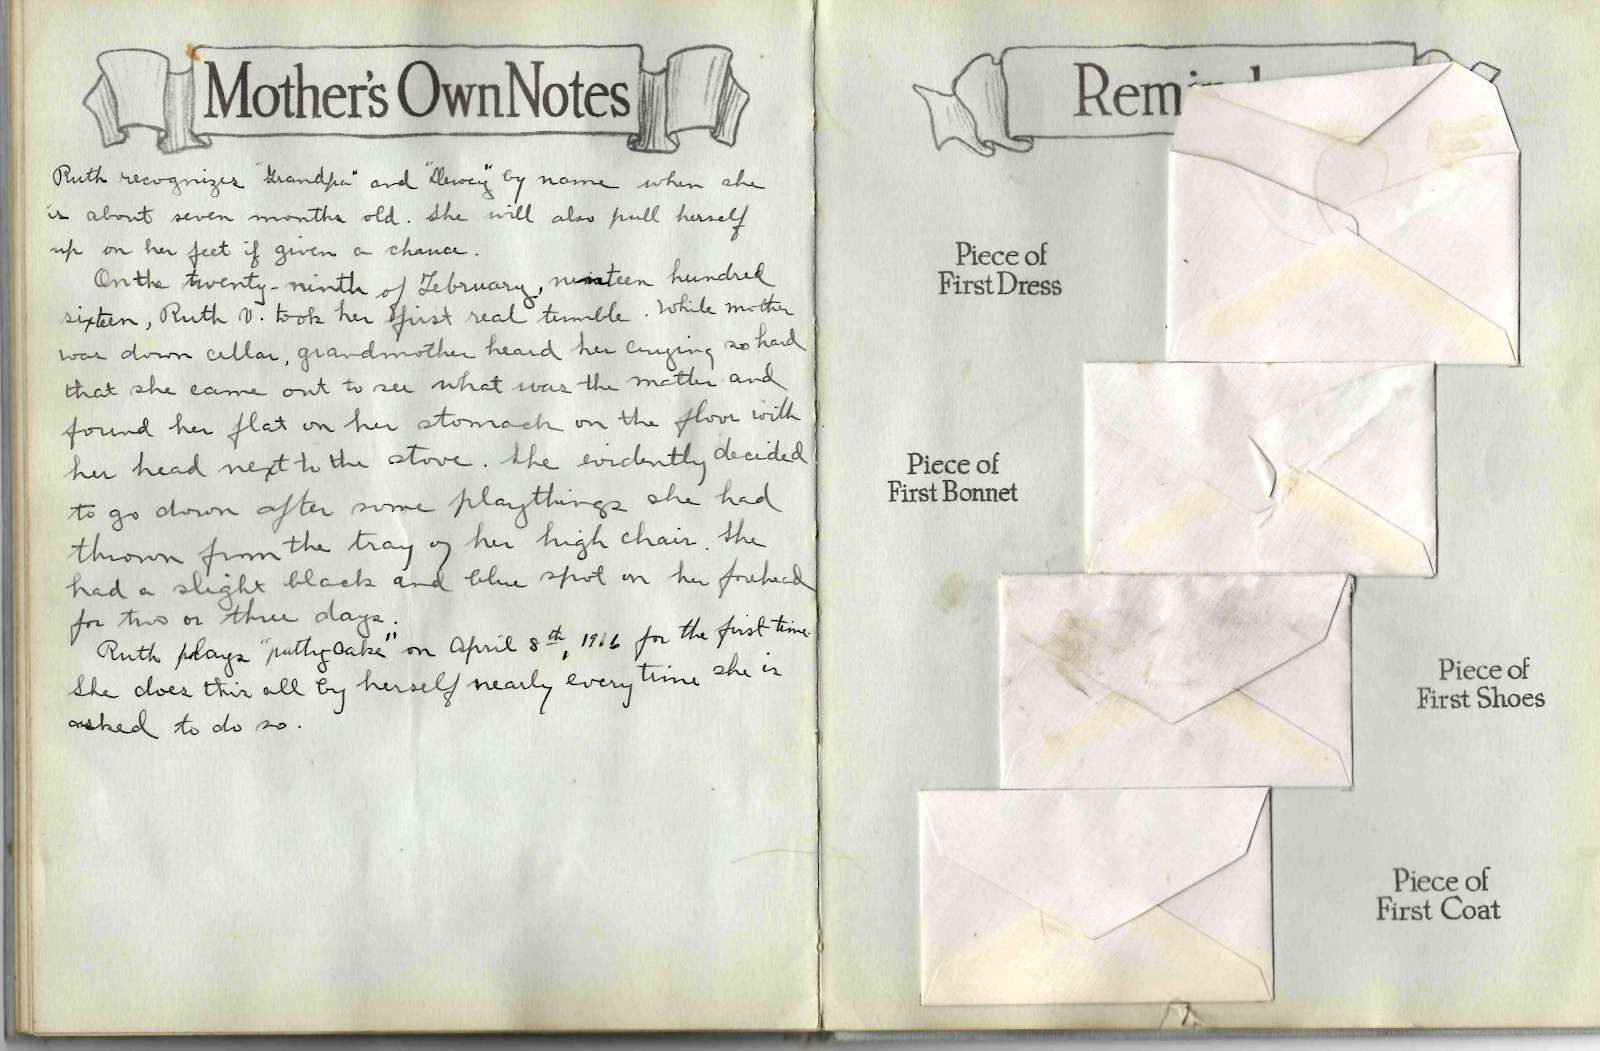 Mother's Own Notes
Ruth recognizes "Grandpa" and "Dewey" by name when she
is about seven months old. She will also pull herself
up on her feet if given a chance.
On the twenty-ninth of February, nineteen hundred
sixteen, Ruth V. took her first real tumble. While mother
was down cellar, grandmother heard her crying so hard
that she came out to see what was the matter and
found her flat on her stomach on the floor with
her head next to the stove. She evidently decided
to go down after some playthings she had
thrown from the tray of her high chair. She
had a slight black and blue spot on her forehead
for two or three days.
Ruth plays "patty cake" on April 8th, 1916 for the first time.
She does this all by herself nearly every time she is
asked to do so.
Piece of
First Dress
Piece of
First Bonnet
Piece of
First Shoes
Piece of
First Coat